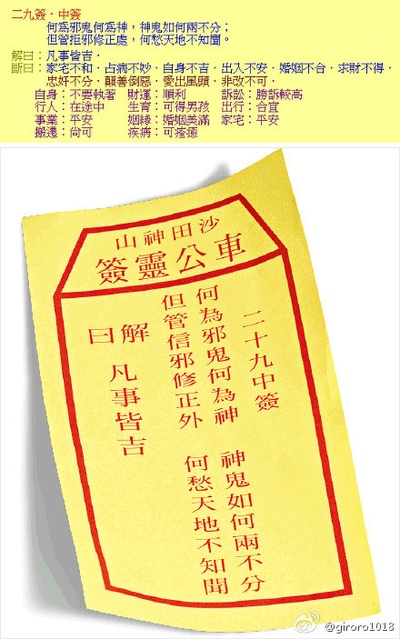 二九簽．中簽
何為邪鬼何為神，神鬼如何兩不分；
但管拒邪修正處，何愁天地不知聞。
解曰：凡事皆吉．
斷曰：家宅不和．占病不妙．自身不吉．出入不安．婚姻不合．求財不得．
忠奸不分．顛善倒惡．愛出風頭．非改不可．
自身：不要執著 財運：順利 訴訟：勝訴較高
行人：在途中 生育：可得男孩 出行：合宜
事業：平安 姻緣：婚姻美滿 家宅：平安
搬遷：尚可 疾病：可痊癒
沙田神山
車公靈簽
二十九中簽
何為邪鬼何為神 神鬼如何兩不分
但管信邪修正外 何愁天地不知聞
解曰 凡事皆吉
@giroro1018